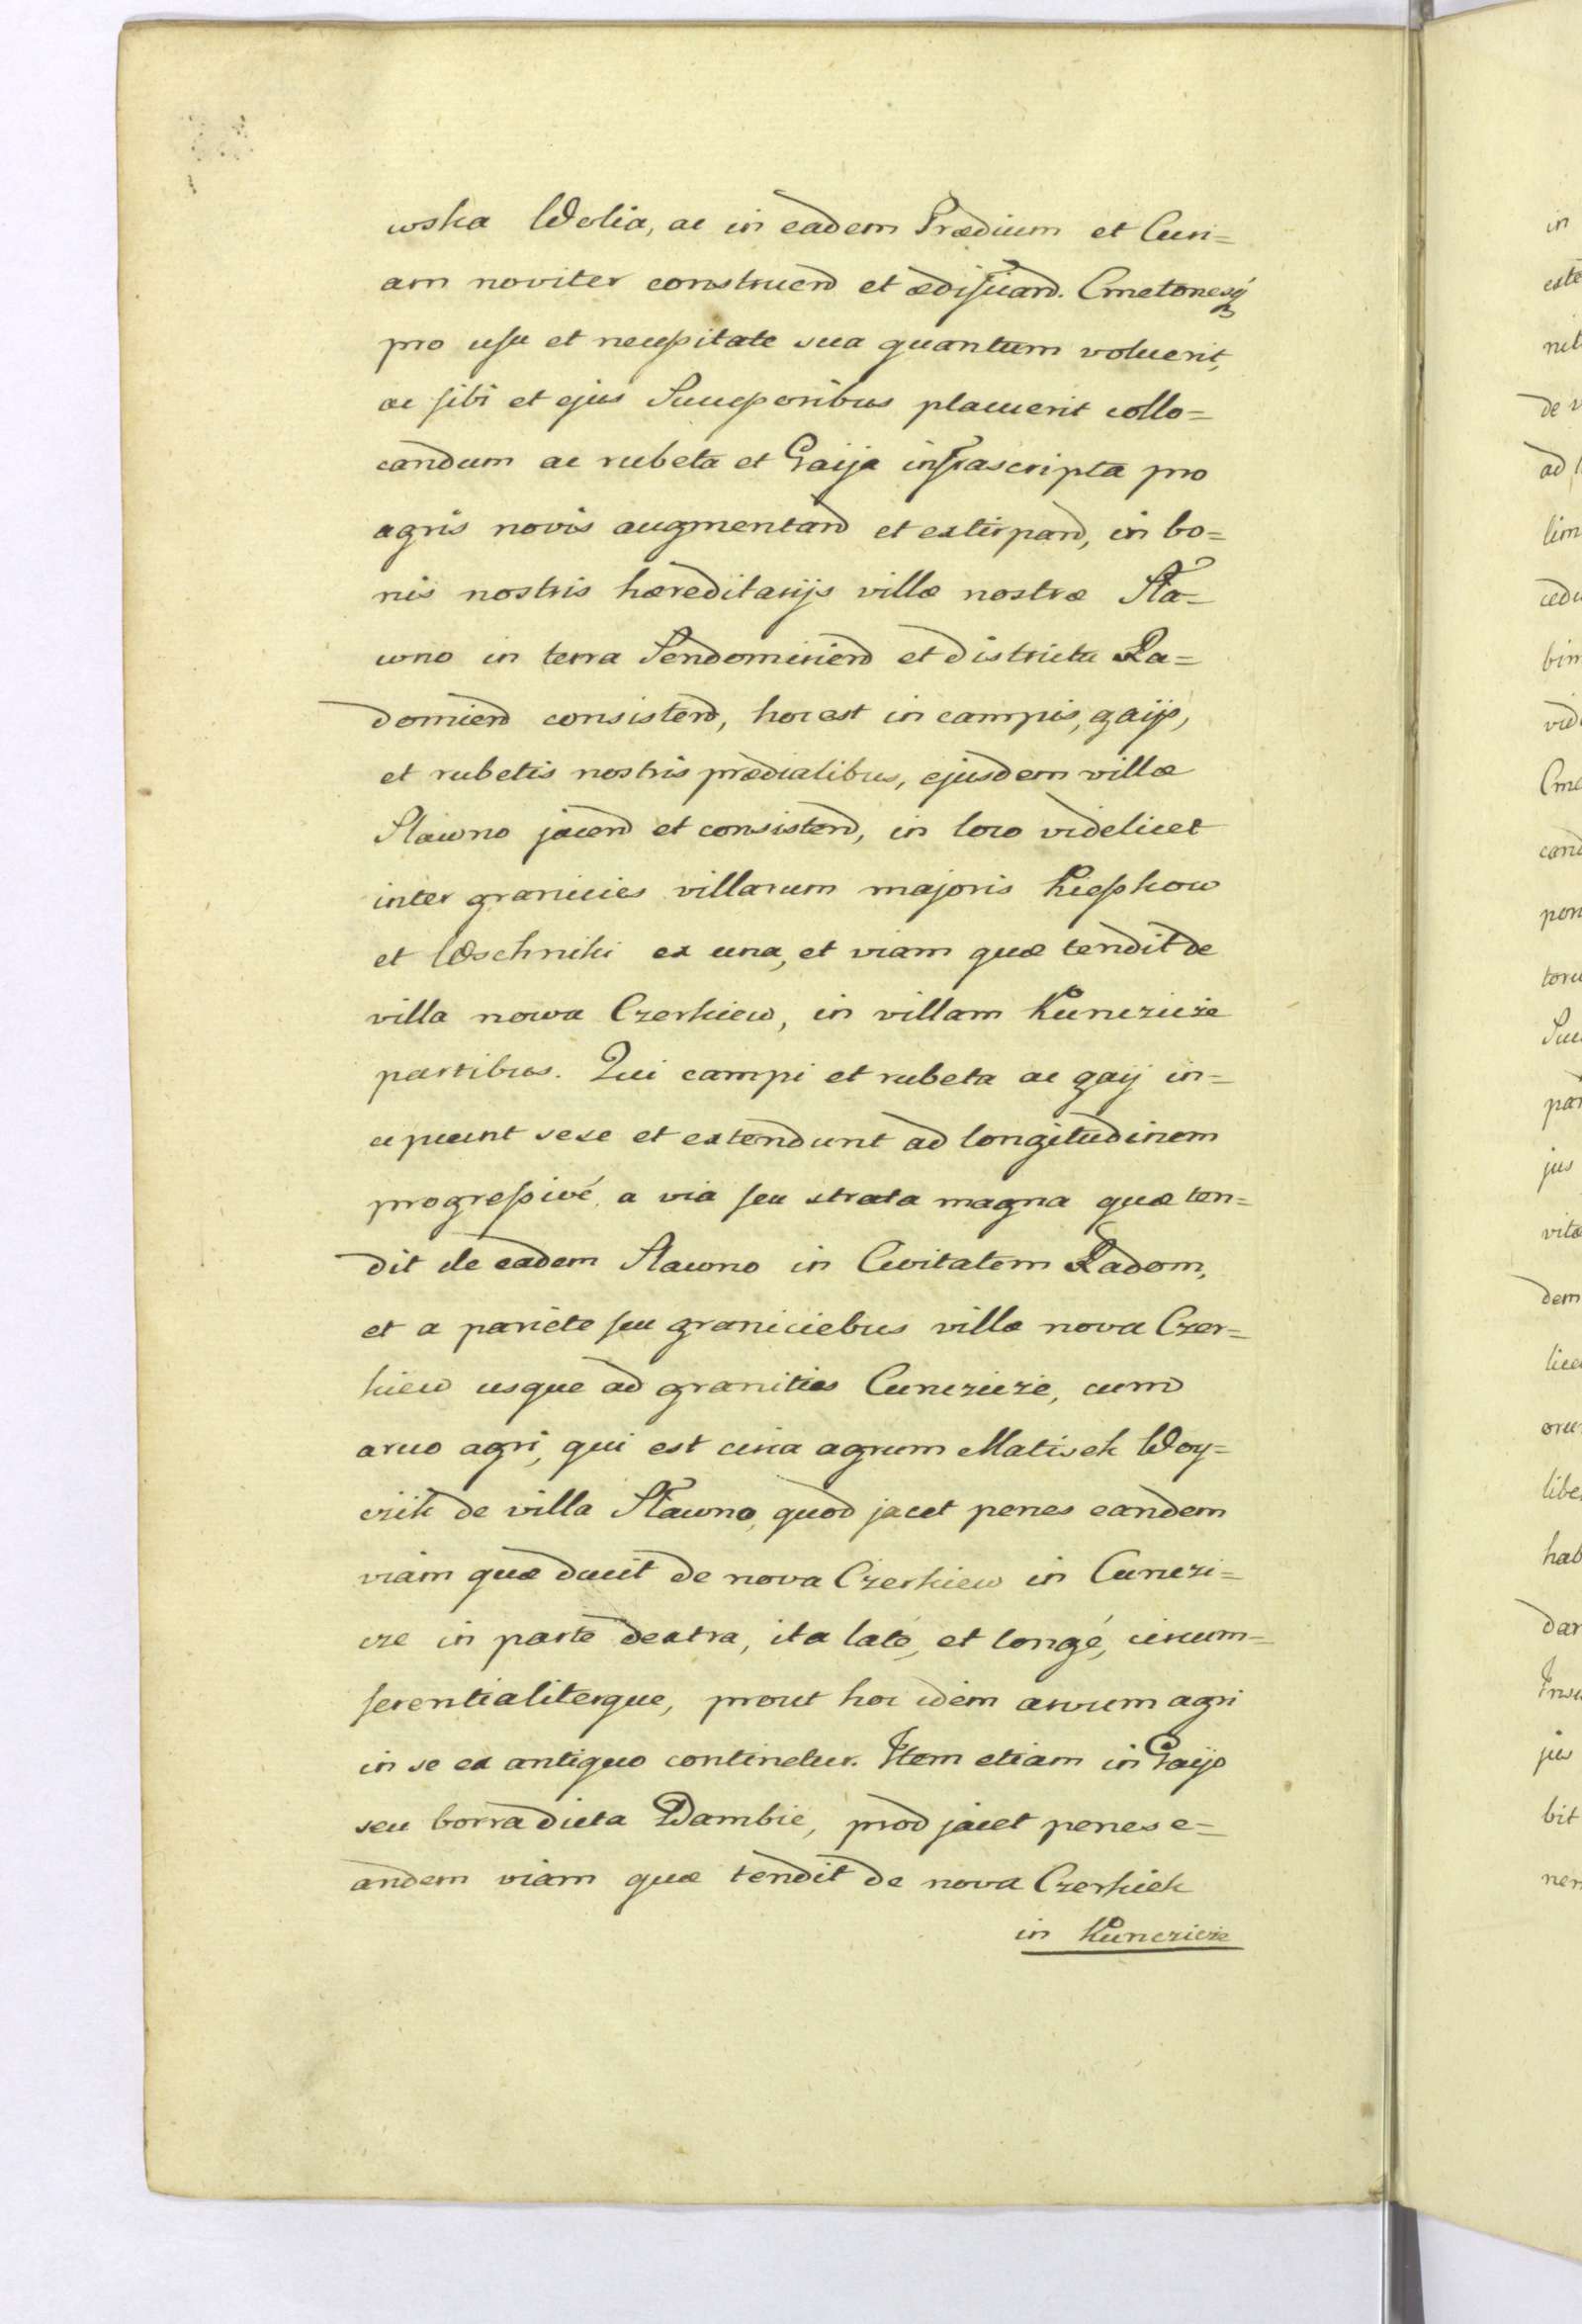 wska Wolia, ac in eadem Prædium et Curi=
am noviter construend et ædificand. Cmetonesq́
pro usu et necessitate sua quantum voluerit,
ac sibi et ejus Successoribus placuerit collo=
candum ac rubeta et Gaija infrascripta pro
agris novis augmentand et extirpand, in bo=
nis nostris hæreditarijs villæ nostræ Sta=
wno in terra Sendomiriend et districtu Ra=
domiend consistend, hoc est in campis, gaijs,
et rubetis nostris prædialibus, ejusdem villæ
Slawno jacend et consistend, in loco videlicet
inter granicies villarum majoris Kiesskow
et Woschniki ex una, et viam quæ tendit de
villa nowa Czerkiew, in villam Kunczicze
partibus. Qui campi et rubeta ac gaij in=
cipiunt sese et extendunt ad longitudinem
progressivé a via seu strata magna quæ ten=
dit de eadem Slawno in Civitatem Radom,
et a pariete seu graniciebus villæ nova Czer=
kiew usque ad granities Cunczicze, cum
aruo agri, qui est circa agrum Matisek Woy=
czik de villa Stawno, quod jacet penes eandem
viam quæ ducit de nova Czerkiew in Cunczi=
cze in parte dextra, ita laté, et longé, circum=
ferentialiterque, prout hoc idem arvum agri
in se ex antiquo continetur. Item etiam in Gaijo
seu borra dicta Dambie, prod jacet penes e=
andem viam quæ tendit de nova Czerkiek
in Kunczicze
in
de v
ad
lim
bin
cand
pon
jus
dem
hab
dar
jus
bit